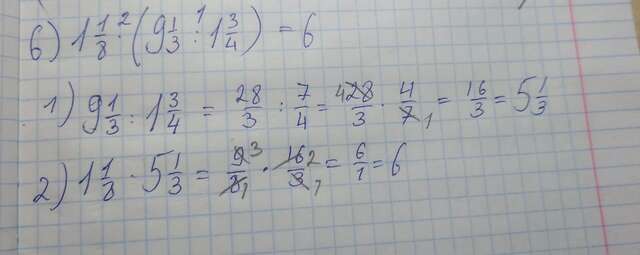 б) 1 1/8 ·² (9 1/3 :¹ 1 3/4) = 6
1) 9 1/3 : 1 3/4 = 28/3 : 7/4 = 4 28/3 · 4/7 1 = 16/3 = 5 1/3
2) 1 1/8 · 5 1/3 = 9 3/8 1 · 16 2/3 1 = 6/1 = 6